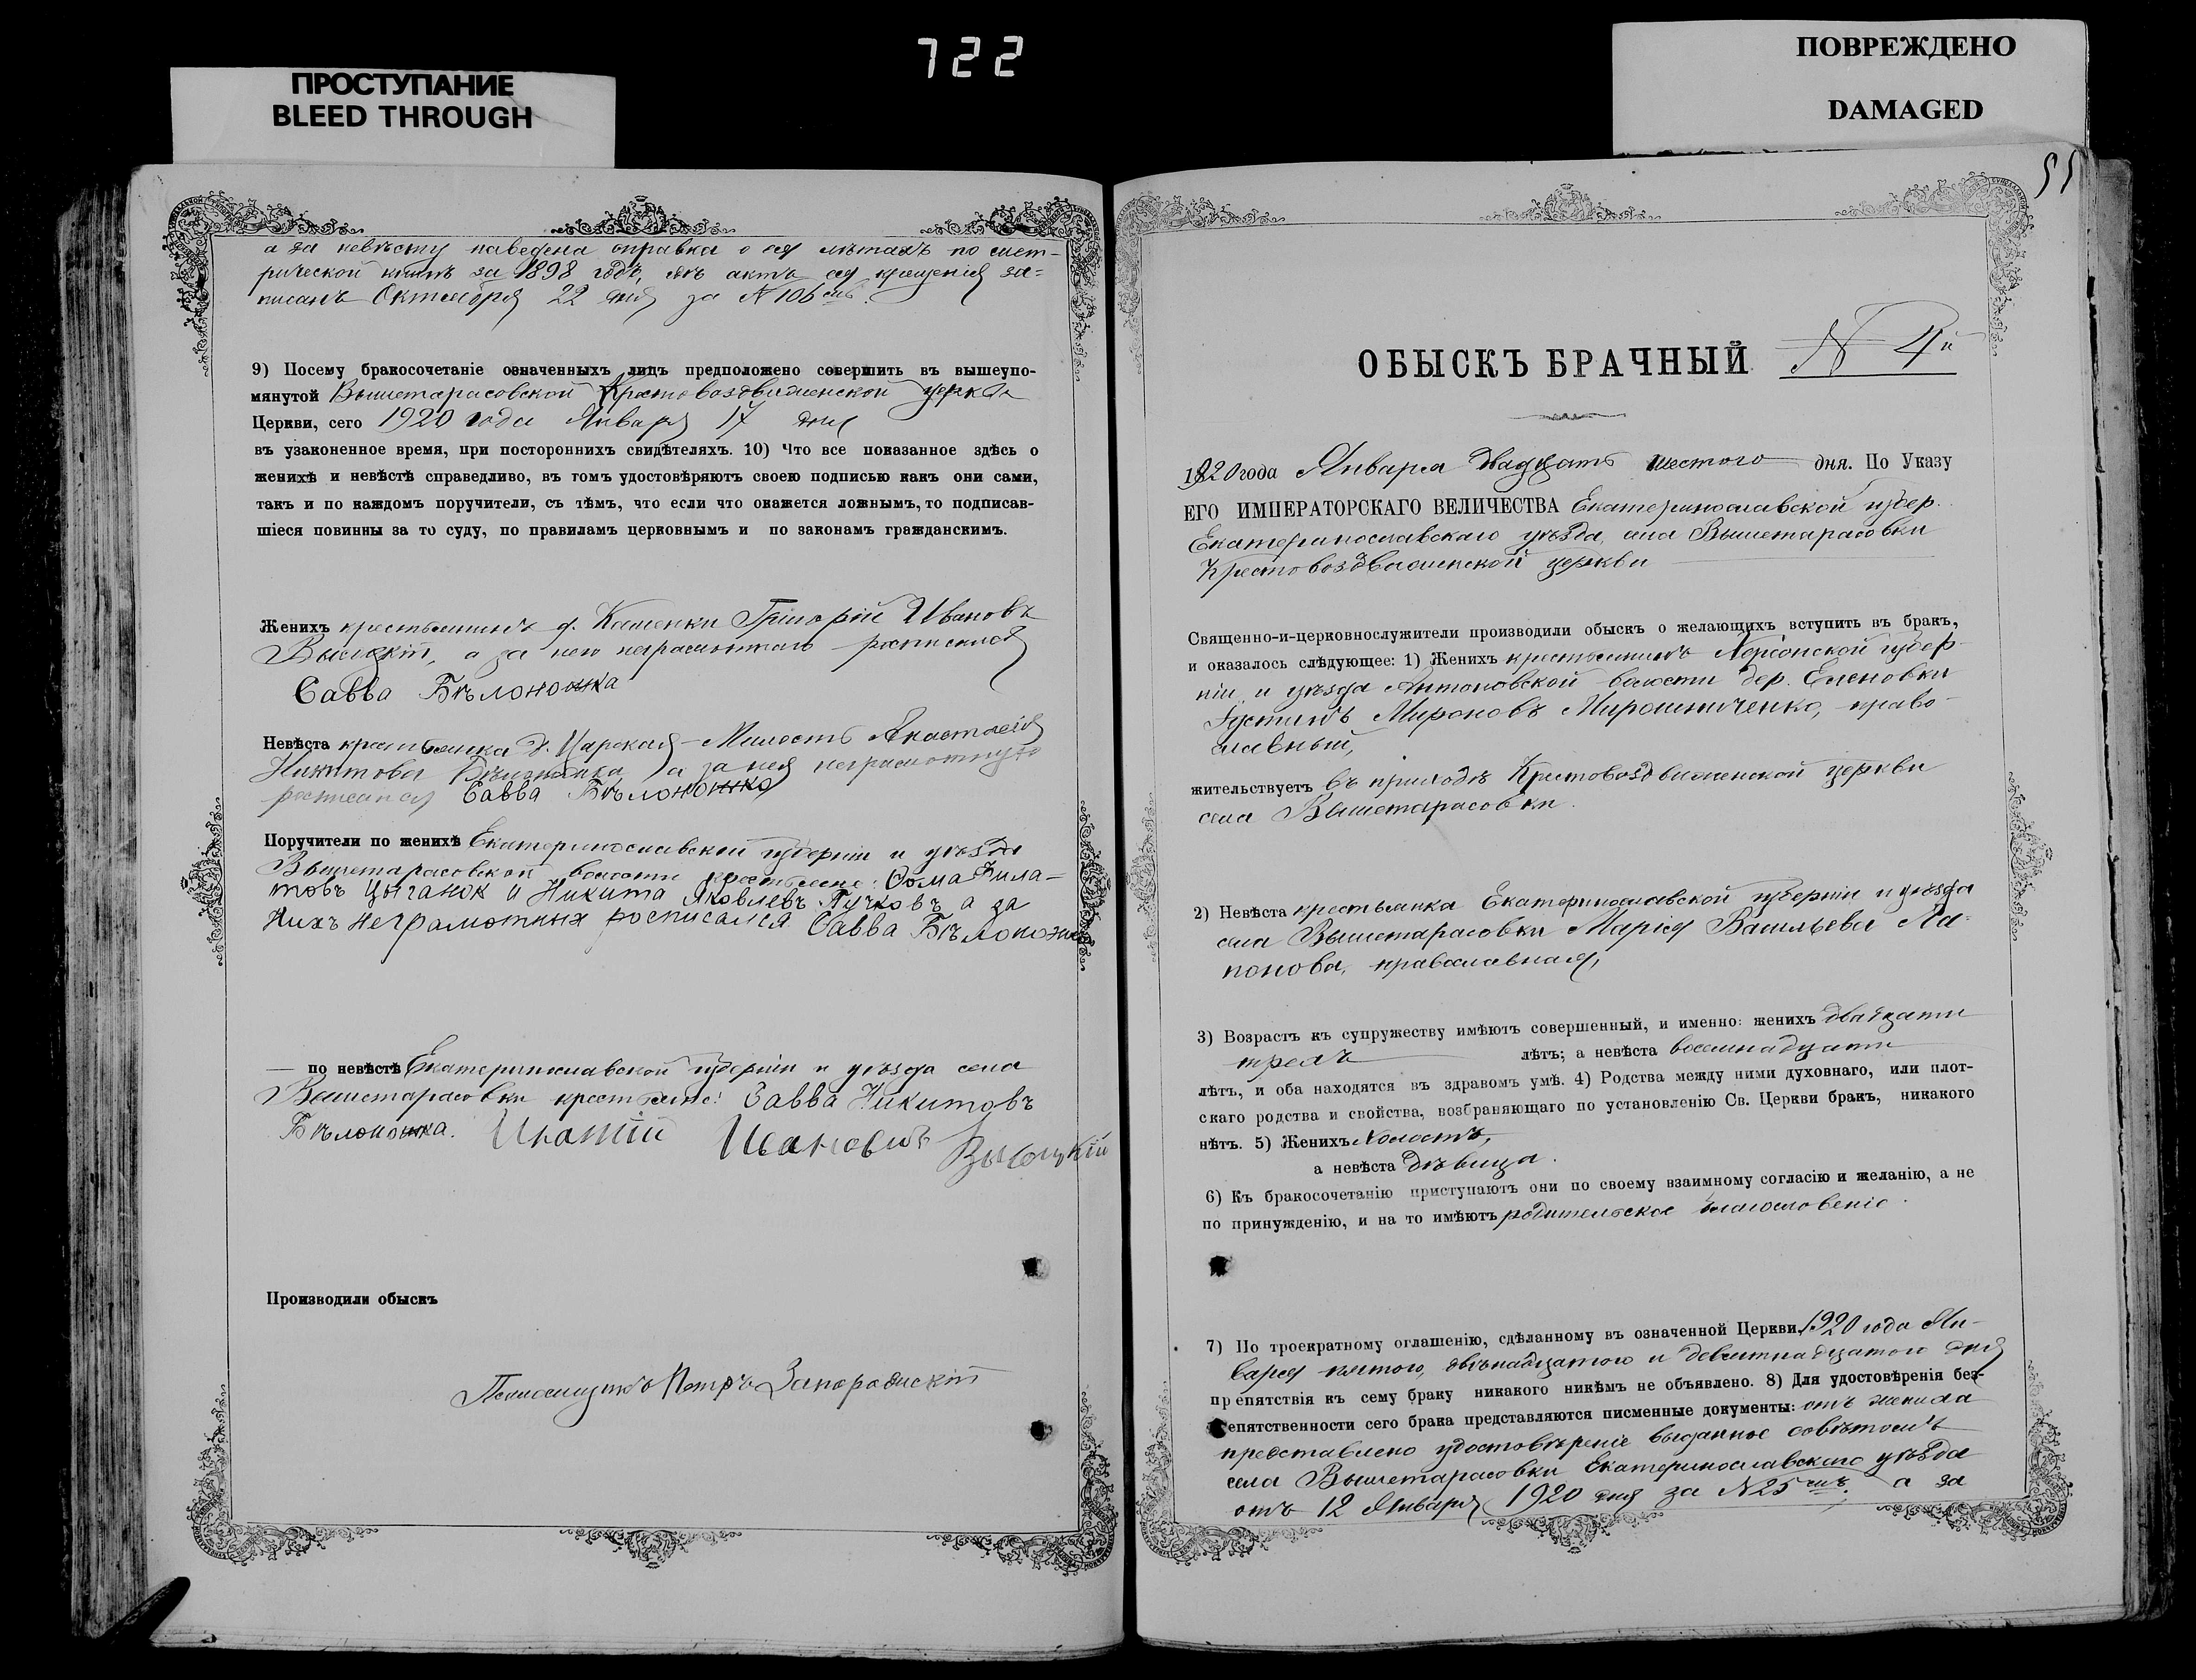 722
ПРОСТУПАНИЕ
BLEED THROUGH
ПОВРЕЖДЕНО
DAMAGED
а за невѣсту наведена справка о ея лѣтахъ по мет-
рической книгѣ за 1898 годъ, гдѣ актъ ея крещенія за-
писанъ Октября 22 дня за № 106
9) Посему бракосочетаніе означенныхъ лицъ предположено совершить въ вышеупо-
мянутой Вышетарасовской Крестовоздвиженской церкви
Церкви, сего 1920 года Января 17 дня
въ узаконенное время, при постороннихъ свидѣтеляхъ. 10) Что все показанное здѣсь о
женихѣ и невѣстѣ справедливо, въ томъ удостовѣряютъ своею подписью какъ они сами,
такъ и по каждомъ поручители, съ тѣмъ, что если что окажется ложнымъ, то подписав-
шіеся повинны за то суду, по правиламъ церковнымъ и по законамъ гражданскимъ.
Женихъ крестьянинъ д. Каменки Григорій Ивановъ
Высоцкій, а за него неграмотнаго росписался
Савва Бѣлоножка
Невѣста крестьянка д. Царская-Милость Анастасія
Никитова Бѣлоножка а за нея неграмотную
росписался Савва Бѣлоножка
Поручители по женихѣ Екатеринославской губерніи и уѣзда
Вышетарасовской волости крестьяне: Ѳома Фила-
товъ Цыганок и Никита Яковлевъ Пучковъ а за
них неграмотныя росписался Савва Бѣлоножка
по невѣстѣ Екатеринославской губерніи и уѣзда села
Вышетарасовки крестьяне: Савва Никитовъ
Бѣлоножка. Игнатій Ивановъ Высоцкій
Производили обыскъ
Псаломщикъ Петръ
51
ОБЫСКЪ БРАЧНЫЙ № 4й
1920 года Января двадцать шестого дня. По Указу
ЕГО ИМПЕРАТОРСКАГО ВЕЛИЧЕСТВА Екатеринославской губер.
Екатеринославскаго уѣзда, села Вышетарасовки
Крестовоздвиженской церкви
Священно-и-церковнослужители производили обыскъ о желающихъ вступить въ бракъ,
и оказалось слѣдующее: 1) Женихъ крестьянинъ Херсонской губер-
ніи и уѣзда Антоновской волости дер. Еленовки
Іустинъ Мироновъ Мирошниченко, право-
славный,
жительствуетъ въ приходѣ Крестовоздвиженской церкви
села Вышетарасовки.
2) Невѣста крестьянка Екатеринославской губерніи и уѣзда
села Вышетарасовки Марія Васильева Ла-
понова, православная,
3) Возрастъ къ супружеству имѣютъ совершенный, и именно: женихъ двадцати
трехъ лѣтъ; а невѣста восемнадцати
лѣтъ, и оба находятся въ здравомъ умѣ. 4) Родства между ними духовнаго, или плот-
скаго родства и свойства, возбраняющаго по установленію Св. Церкви бракъ, никакого
нѣтъ. 5) Женихъ холостъ,
а невѣста дѣвица.
6) Къ бракосочетанію приступаютъ они по своему взаимному согласію и желанію, а не
по принужденію, и на то имѣютъ родительское благословеніе.
7) По троекратному оглашенію, сдѣланному въ означенной Церкви 1920 года Ян-
варя пятого, двѣнадцатого и девятнадцатого дня
препятствія къ сему браку никакого никѣмъ не объявлено. 8) Для удостовѣренія без-
епятственности сего брака представляются писменные документы: отъ жениха
представлено удостовѣреніе выданное совѣтомъ
села Вышетарасовки Екатеринославскаго уѣзда
отъ 12 Января 1920 дня за № 25 а за